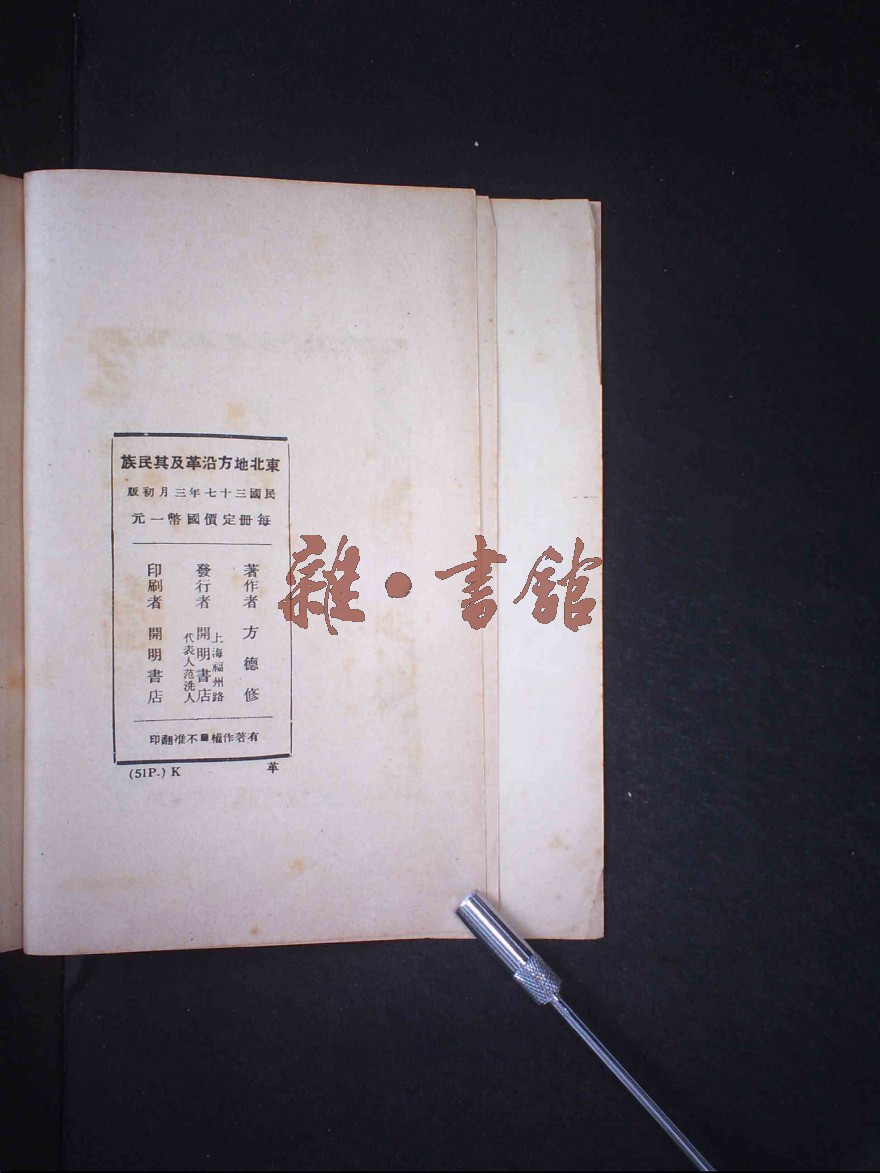 東北地方沿革及其民族
民國三十七年三月初版
每冊定價國幣一元
著作者 方德修
發行者 上海福州路
開明書店
代表人范洗人
印刷者 開明書店
有著作權■不准翻印
(51P.) K 革
雜·書館